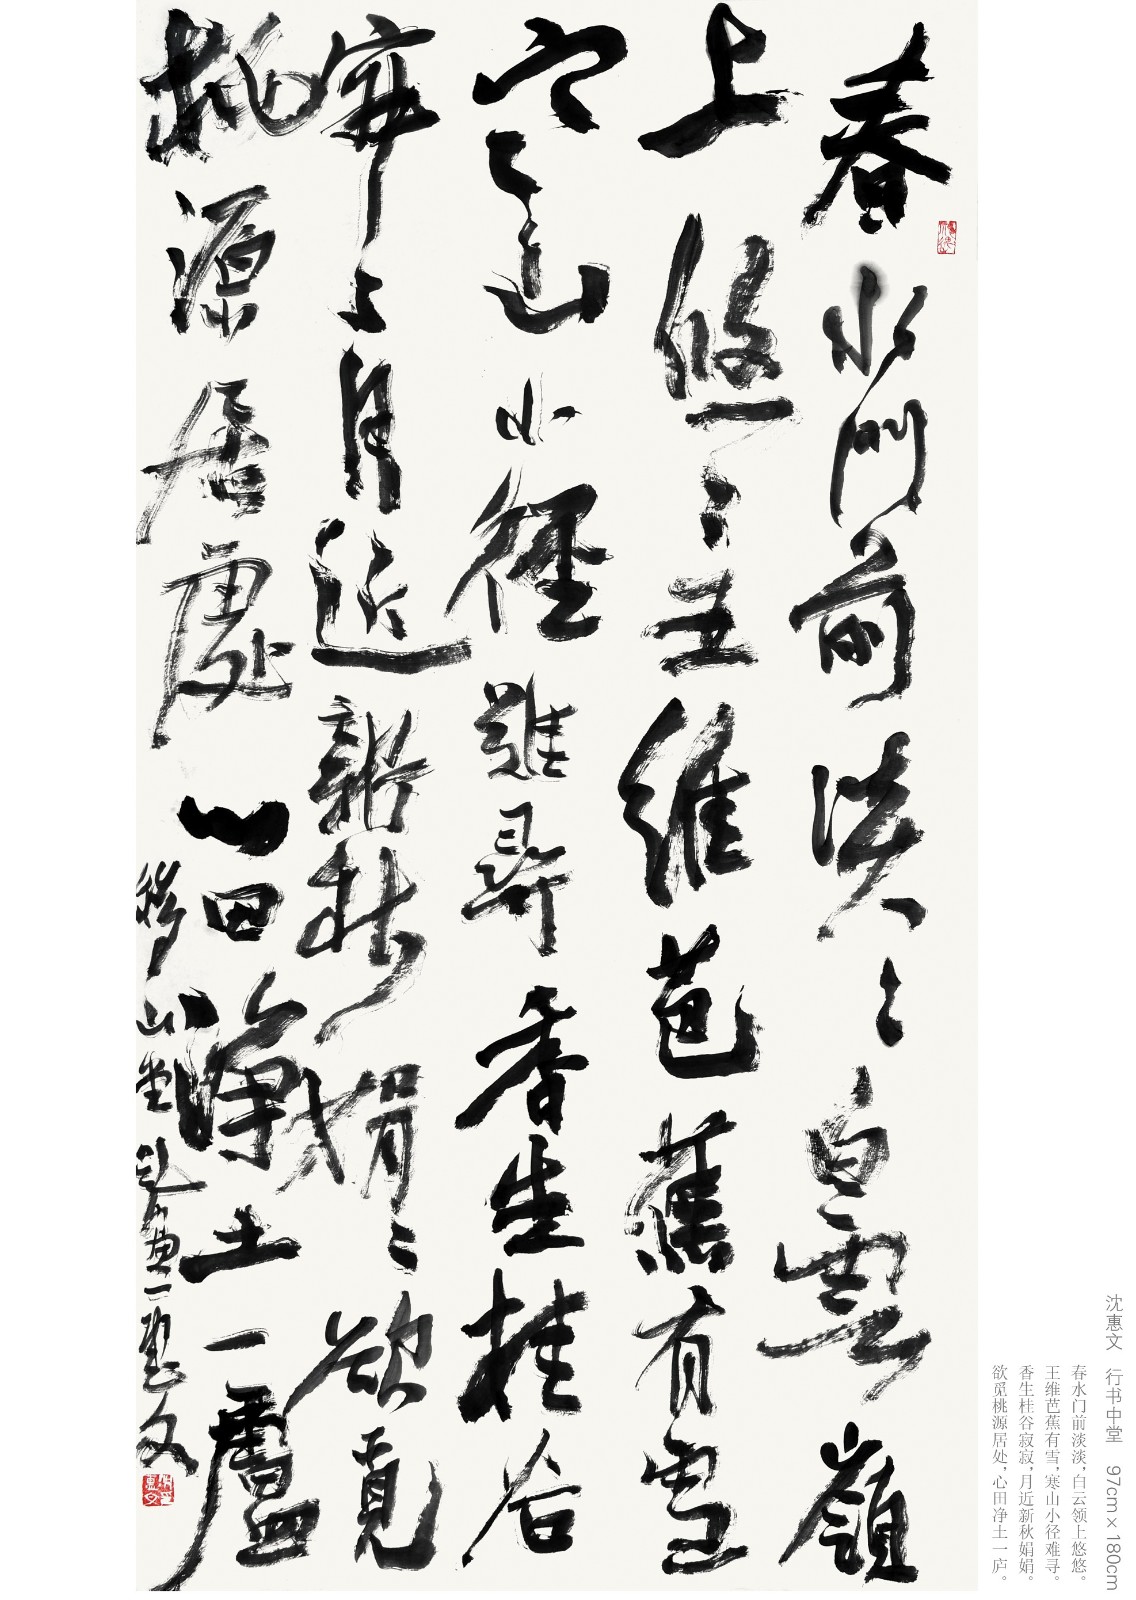 沈惠文 行书中堂 97cm×180cm
春水门前淡淡，白云领上悠悠。
王维芭蕉有雪，寒山小径难寻。
香生桂谷寂寂，月近新秋娟娟。
欲觅桃源居处，心田净土一庐。
春水門前淡〻白雲嶺
上悠〻王維芭蕉有雪
寒山小徑難尋香生桂谷
寂〻月近新秋娟〻欲覓
桃源居處心田淨土一廬
移山堂